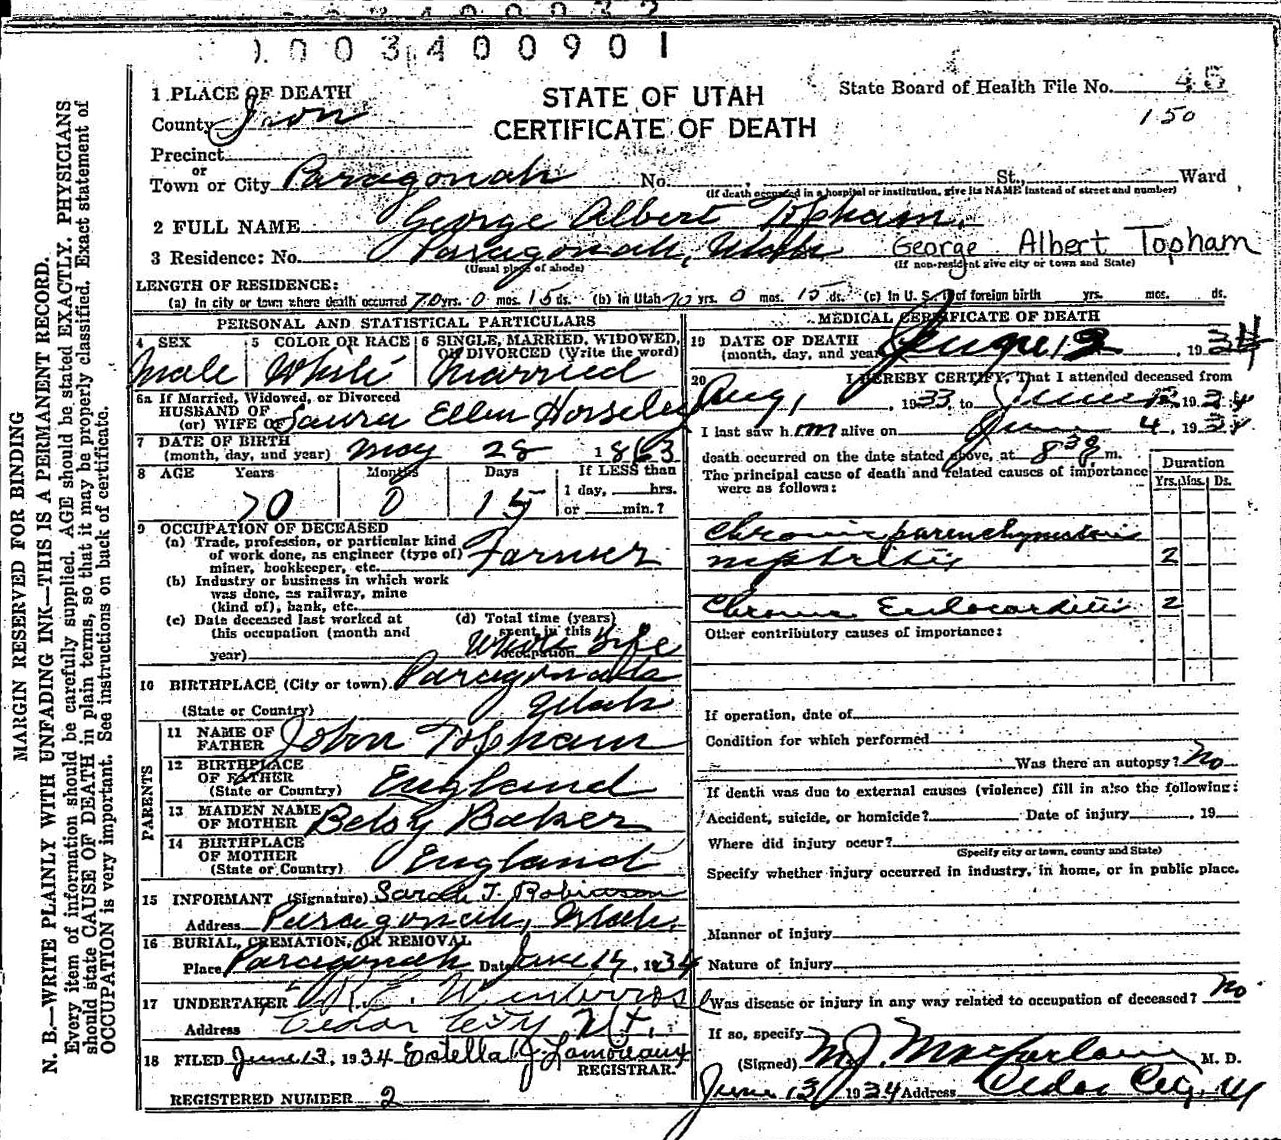 003400901
1 PLACE OF DEATH
County Iron
STATE OF UTAH
CERTIFICATE OF DEATH
State Board of Health File No. 45
150
Precinct
or
Town or City Paragonah No. St., Ward
(If death occurred in a hospital or institution, give its NAME instead of street and number)
2 FULL NAME George Albert Topham.
3 Residence: No. Paragonah, Utah George Albert Topham
(Usual place of abode) (If non-resident give city or town and State)
LENGTH OF RESIDENCE:
(a) In city or town where death occurred 70 yrs. 0 mos. 15 ds. (b) In Utah 70 yrs. 0 mos. 15 ds. (c) In U. S. if of foreign birth yrs. mos. ds.
PERSONAL AND STATISTICAL PARTICULARS
4 SEX Male
5 COLOR OR RACE White
6 SINGLE, MARRIED, WIDOWED, OR DIVORCED (Write the word)
Married
6a If Married, Widowed, or Divorced
HUSBAND OF
(or) WIFE OF Laura Ellen Horsley
7 DATE OF BIRTH
(month, day, and year) May 28 1863
8 AGE Years Months Days If LESS than
70 0 15 1 day, hrs.
or min.?
9 OCCUPATION OF DECEASED
(a) Trade, profession, or particular kind
of work done, as engineer (type of)
miner, bookkeeper, etc. Farmer
(b) Industry or business in which work
was done, as railway, mine
(kind of), bank, etc.
(c) Date deceased last worked at
this occupation (month and
year)
(d) Total time (years)
spent in this
occupation Whole life
10 BIRTHPLACE (City or town) Paragonah
(State or Country) Utah
PARENTS
11 NAME OF
FATHER John Topham
12 BIRTHPLACE
OF FATHER
(State or Country) England
13 MAIDEN NAME
OF MOTHER Betsy Baker
14 BIRTHPLACE
OF MOTHER
(State or Country) England
15 INFORMANT (Signature) Sarah T. Robinson
Address Paragonah, Utah.
16 BURIAL, CREMATION, OR REMOVAL
Place Paragonah Date June 14, 1934
17 UNDERTAKER
Address Cedar City, Ut.
18 FILED June 13, 1934 Estella J. Lamoreaux
REGISTRAR.
REGISTERED NUMBER 2
MEDICAL CERTIFICATE OF DEATH
19 DATE OF DEATH
(month, day, and year) June 12 1934
20 I HEREBY CERTIFY, That I attended deceased from
Aug, 1933, to June 12 1934
I last saw him alive on June 4, 1934
death occurred on the date stated above, at 8 30 m.
The principal cause of death and related causes of importance
were as follows:
Duration
Yrs. Mos. Ds.
Chronic parenchymatous
nephritis 2
Chronic Endocarditis 2
Other contributory causes of importance:
If operation, date of
Condition for which performed
Was there an autopsy? No
If death was due to external causes (violence) fill in also the following:
Accident, suicide, or homicide? Date of injury , 19
Where did injury occur?
(Specify city or town, county and State)
Specify whether injury occurred in industry, in home, or in public place.
Manner of injury
Nature of injury
Was disease or injury in any way related to occupation of deceased? No
If so, specify
(Signed) M. J. Macfarlane M. D.
June 13 1934 Address Cedar City, Ut
MARGIN RESERVED FOR BINDING
N. B.—WRITE PLAINLY WITH UNFADING INK—THIS IS A PERMANENT RECORD.
Every item of information should be carefully supplied. AGE should be stated EXACTLY. PHYSICIANS
should state CAUSE OF DEATH in plain terms, so that it may be properly classified. Exact statement of
OCCUPATION is very important. See instructions on back of certificate.